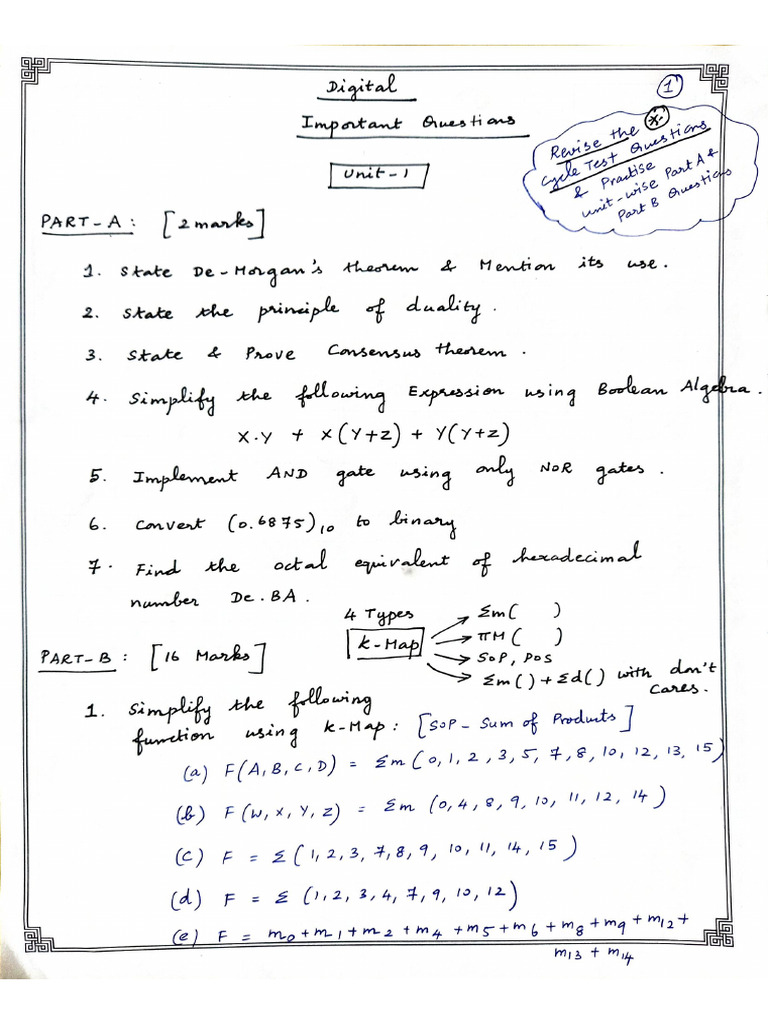 Digital
1
Important Questions
Revise the *
Cycle Test Questions
& Practise
unit-wise Part A &
Part B Questions
Unit-1
PART-A : [2 marks]
1. State De-Morgan's theorem & Mention its use.
2. State the principle of duality.
3. State & Prove Consensus theorem.
4. Simplify the following Expression using Boolean Algebra.
X.Y + X(Y+Z) + Y(Y+Z)
5. Implement AND gate using only NOR gates.
6. Convert (0.6875)₁₀ to binary
7. Find the octal equivalent of hexadecimal
number DC.BA.
4 Types
K-Map
Σm( )
πM( )
SOP, POS
Σm() + Σd() with don't
cares.
PART-B : [16 Marks]
1. Simplify the following
function using K-Map: [SOP - Sum of Products]
(a) F(A,B,C,D) = Σm(0,1,2,3,5,7,8,10,12,13,15)
(b) F(W,X,Y,Z) = Σm (0,4,8,9,10,11,12,14)
(c) F = Σ(1,2,3,7,8,9,10,11,14,15)
(d) F = Σ (1,2,3,4,7,9,10,12)
(e) F = m₀+m₁+m₂+m₄+m₅+m₆+m₈+m₉+m₁₂+
m₁₃+m₁₄